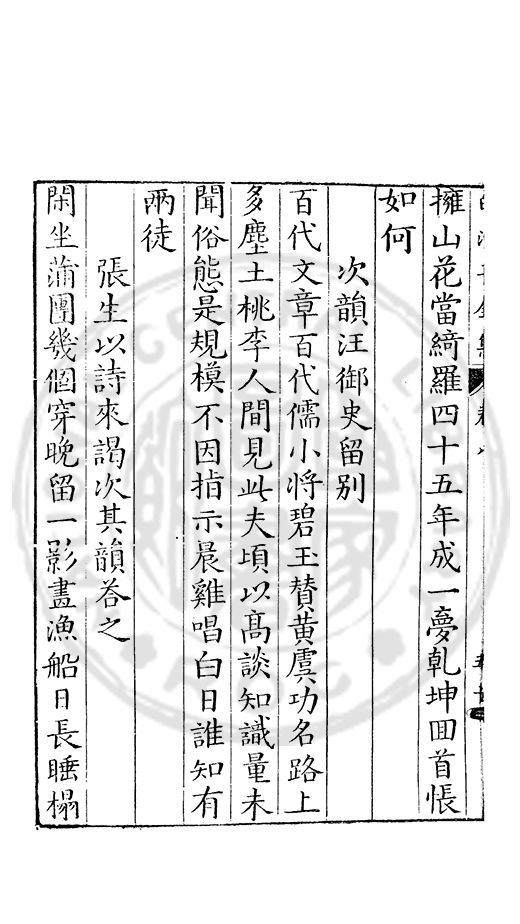 擁山花當綺羅四十五年成一夢乾坤囬首悵
如何
次韻汪御史留别
百代文章百代儒小將碧玉賛黄虞功名路上
多塵土桃李人間見此夫頃以高談知識量未
聞俗態是規模不因指示晨雞唱白日誰知有
兩徒
張生以詩來謁次其韻荅之
閑坐蒲團幾個穿晚留一影畫漁船日長睡榻